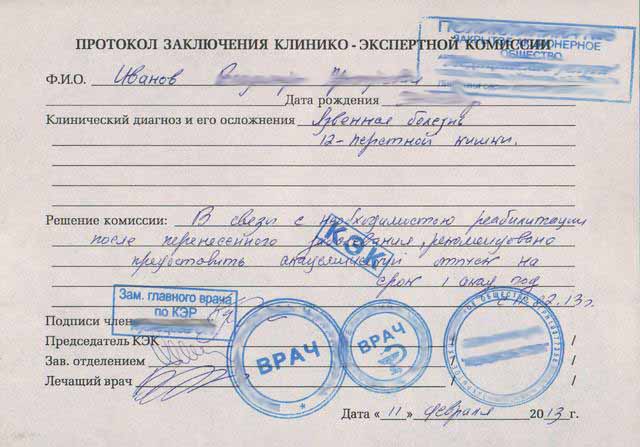 ЗАКРЫТОЕ АКЦИОНЕРНОЕ
ОБЩЕСТВО
ПРОТОКОЛ ЗАКЛЮЧЕНИЯ КЛИНИКО - ЭКСПЕРТНОЙ КОМИССИИ
Ф.И.О. Иванов
Дата рождения
Клинический диагноз и его осложнения Язвенная болезнь
12-перстной кишки.
Решение комиссии: В связи с необходимостью реабилитации
после перенесенного заболевания, рекомендовано
предоставить академический отпуск на
срок 1 акад год
02.13г.
КЭК
Зам. главного врача
по КЭР
Подписи член
Председатель КЭК /
Зав. отделением /
Лечащий врач /
ВРАЧ
ВРАЧ
Дата « 11 » февраля 2013 г.